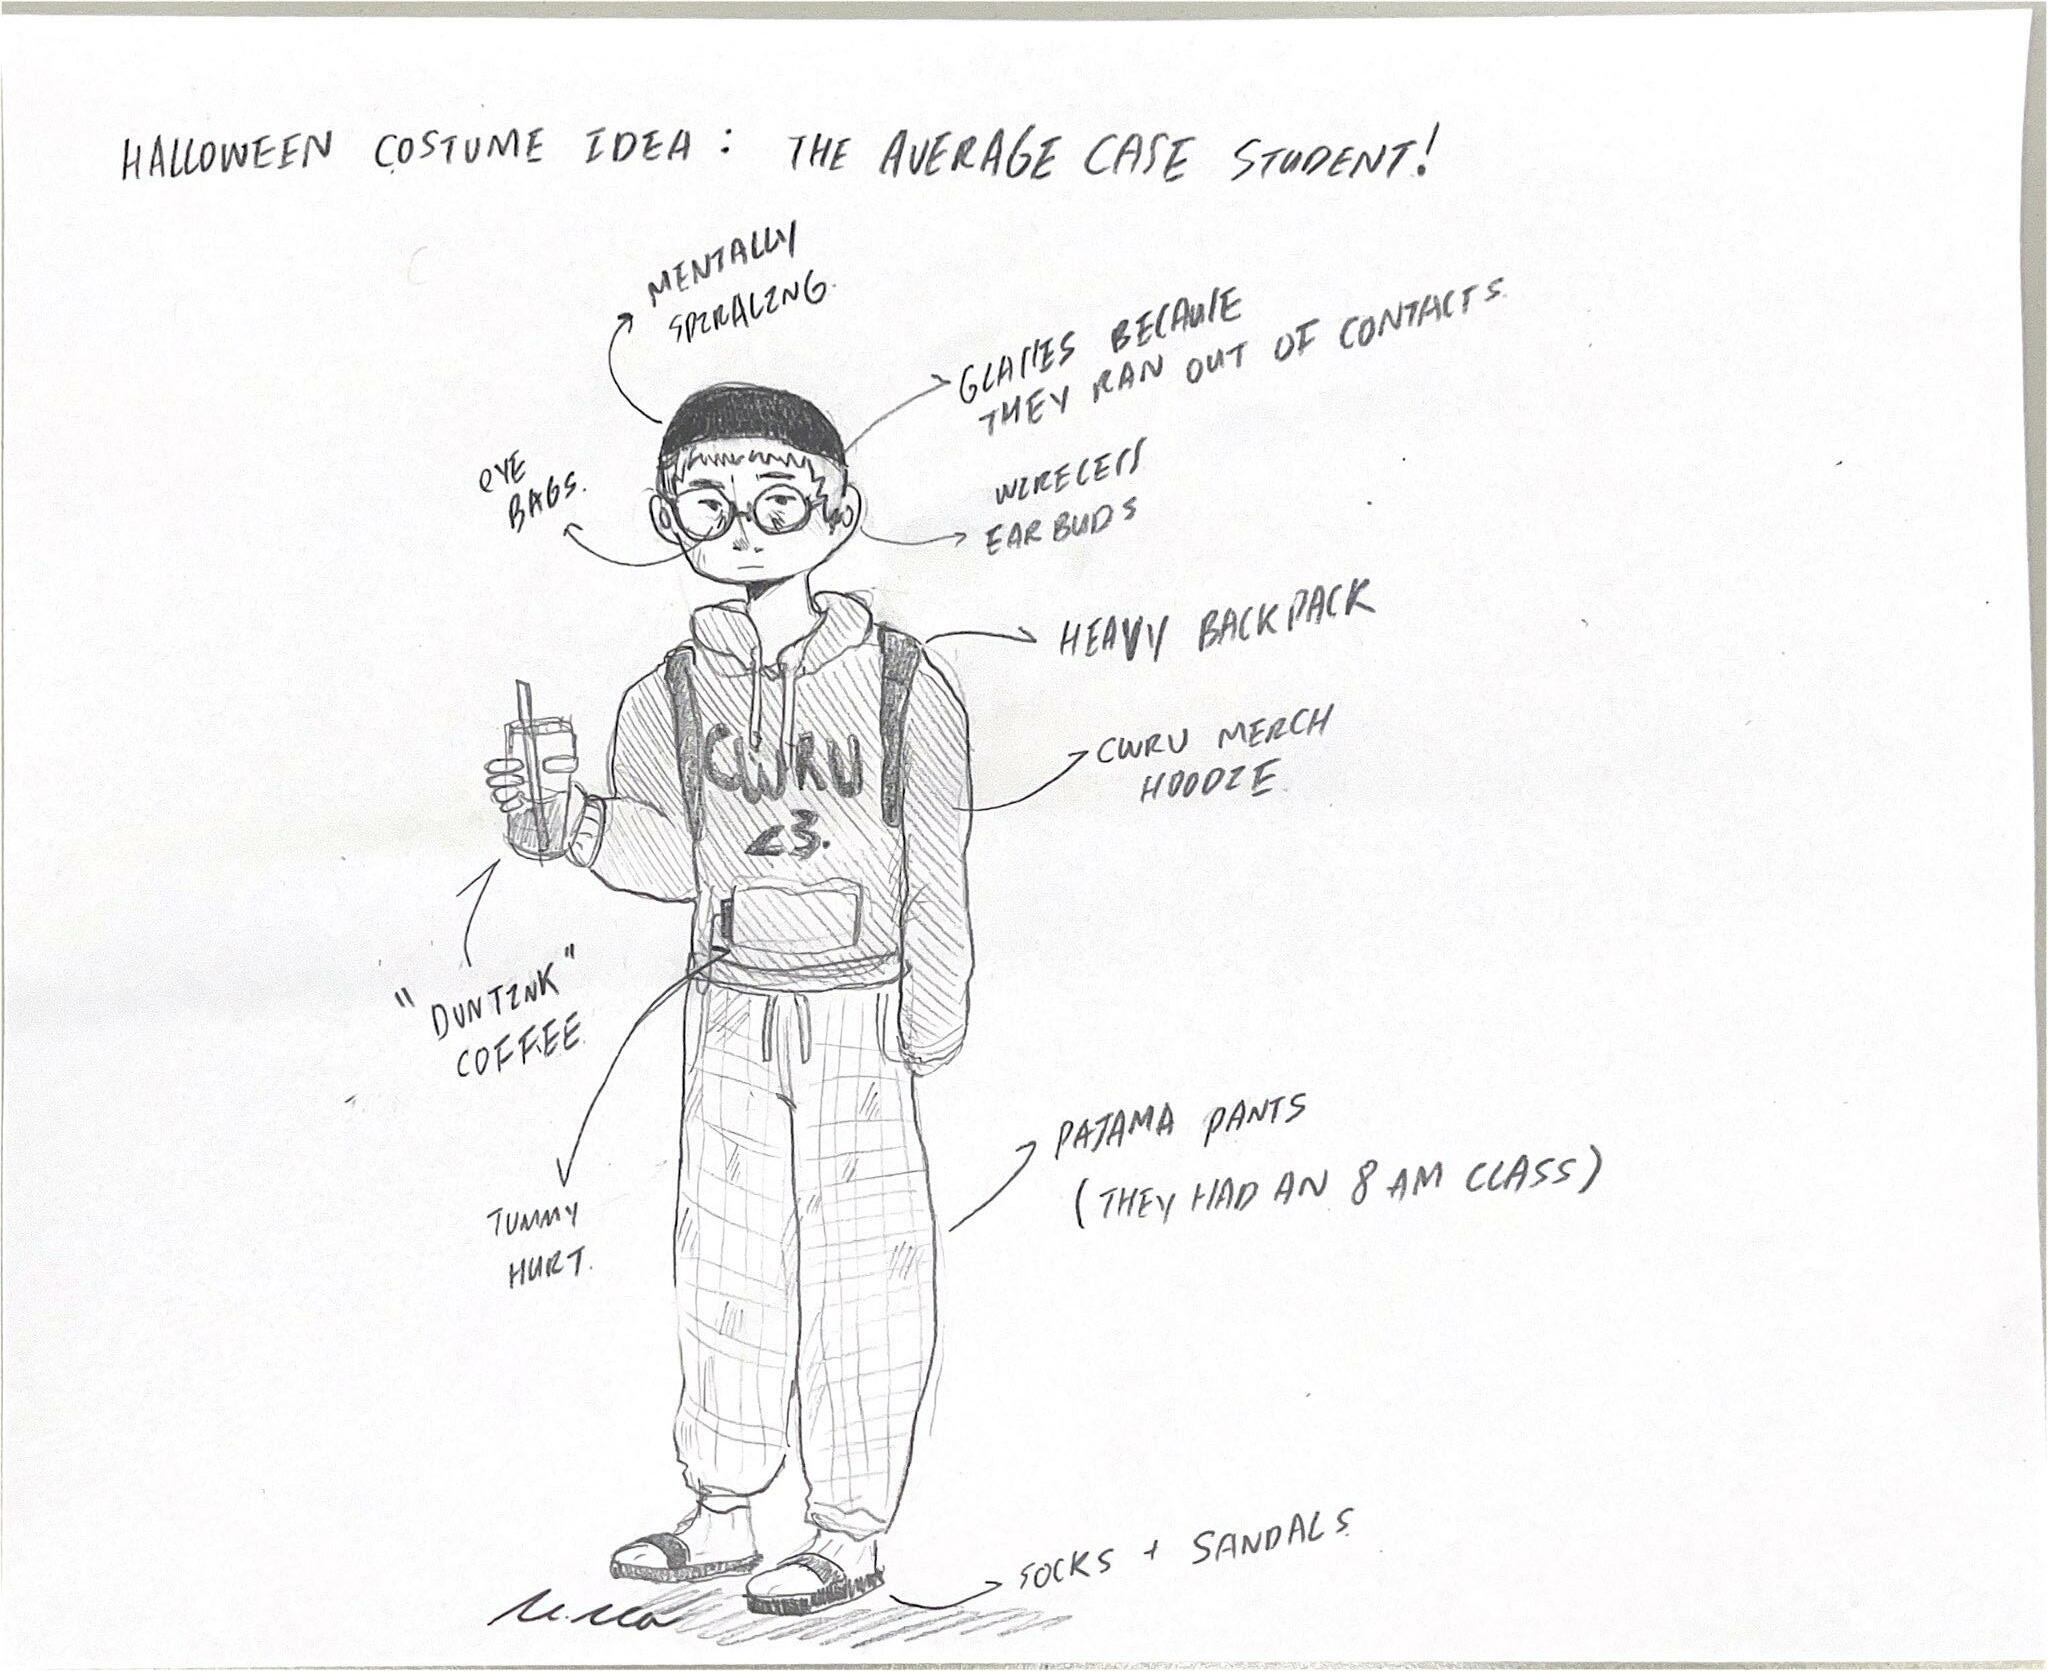 HALLOWEEN COSTUME IDEA : THE AVERAGE CASE STUDENT!
MENTALLY
SPIRALING.
GLASSES BECAUSE
THEY RAN OUT OF CONTACTS.
EYE
BAGS.
WIRELESS
EARBUDS
HEAVY BACKPACK
CWRU
<3.
CWRU MERCH
HOODIE.
"DUNTINK"
COFFEE.
TUMMY
HURT.
PAJAMA PANTS
(THEY HAD AN 8 AM CLASS)
SOCKS + SANDALS